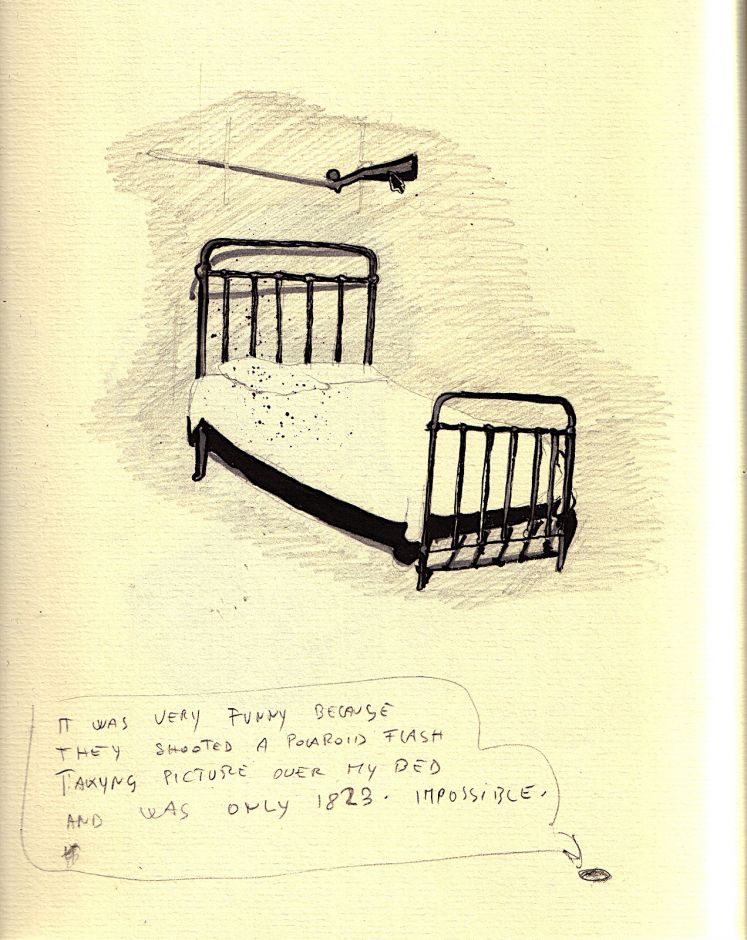 IT WAS VERY FUNNY BECAUSE
THEY SHOOTED A POLAROID FLASH
TAKYNG PICTURE OVER MY BED
AND WAS ONLY 1823. IMPOSSIBLE.